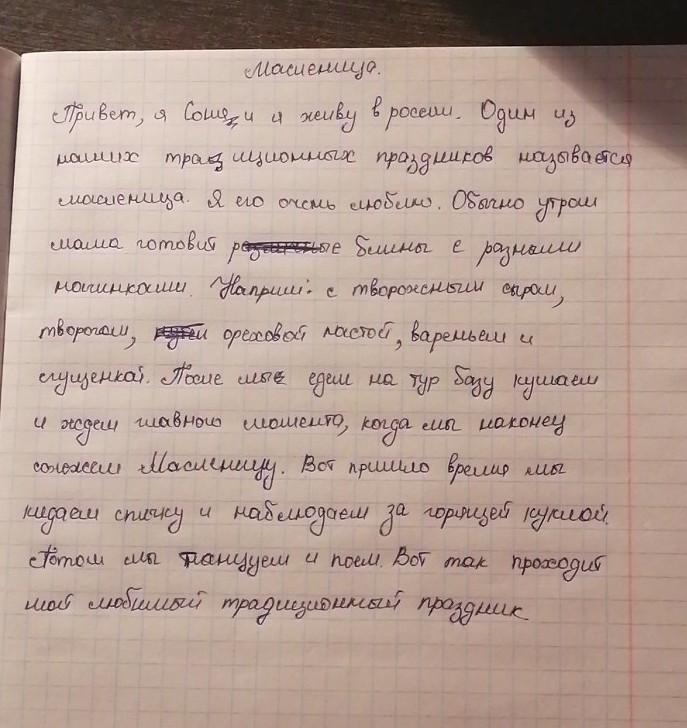 Масленица.
Привет, я Соня, и я живу в росеии. Один из
наших традиционных праздников называется
масленица. Я его очень люблю. Обычно утром
мама готовит блины с разными
начинками. Наприм: с творожным сыром,
творогом, ореховой пастой, вареньем и
сгущенкой. После мы едем на тур базу кушаем
и ждем главного момента, когда мы наконец
сожжем Масленицу. Вот пришло время мы
кидаем спичку и наблюдаем за горящей куклой.
Потом мы танцуем и поем. Вот так проходит
мой любимый традиционный праздник